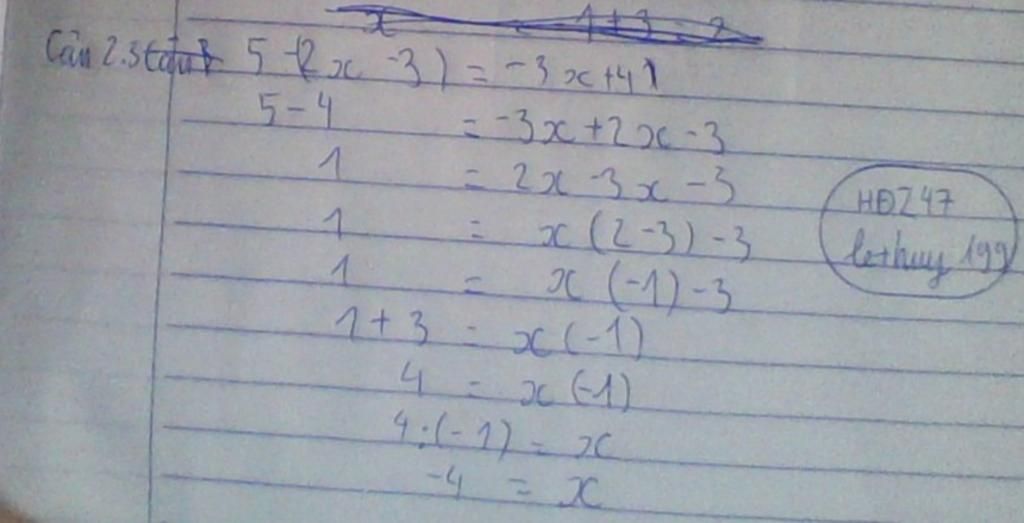 5 - (2x - 3) = -3x + 4
5 - 4 = -3x + 2x - 3
1 = 2x - 3x - 3
1 = x (2 - 3) - 3
1 = x (-1) - 3
1 + 3 = x (-1)
4 = x (-1)
4 : (-1) = x
-4 = x
HĐ247
lethuy 199